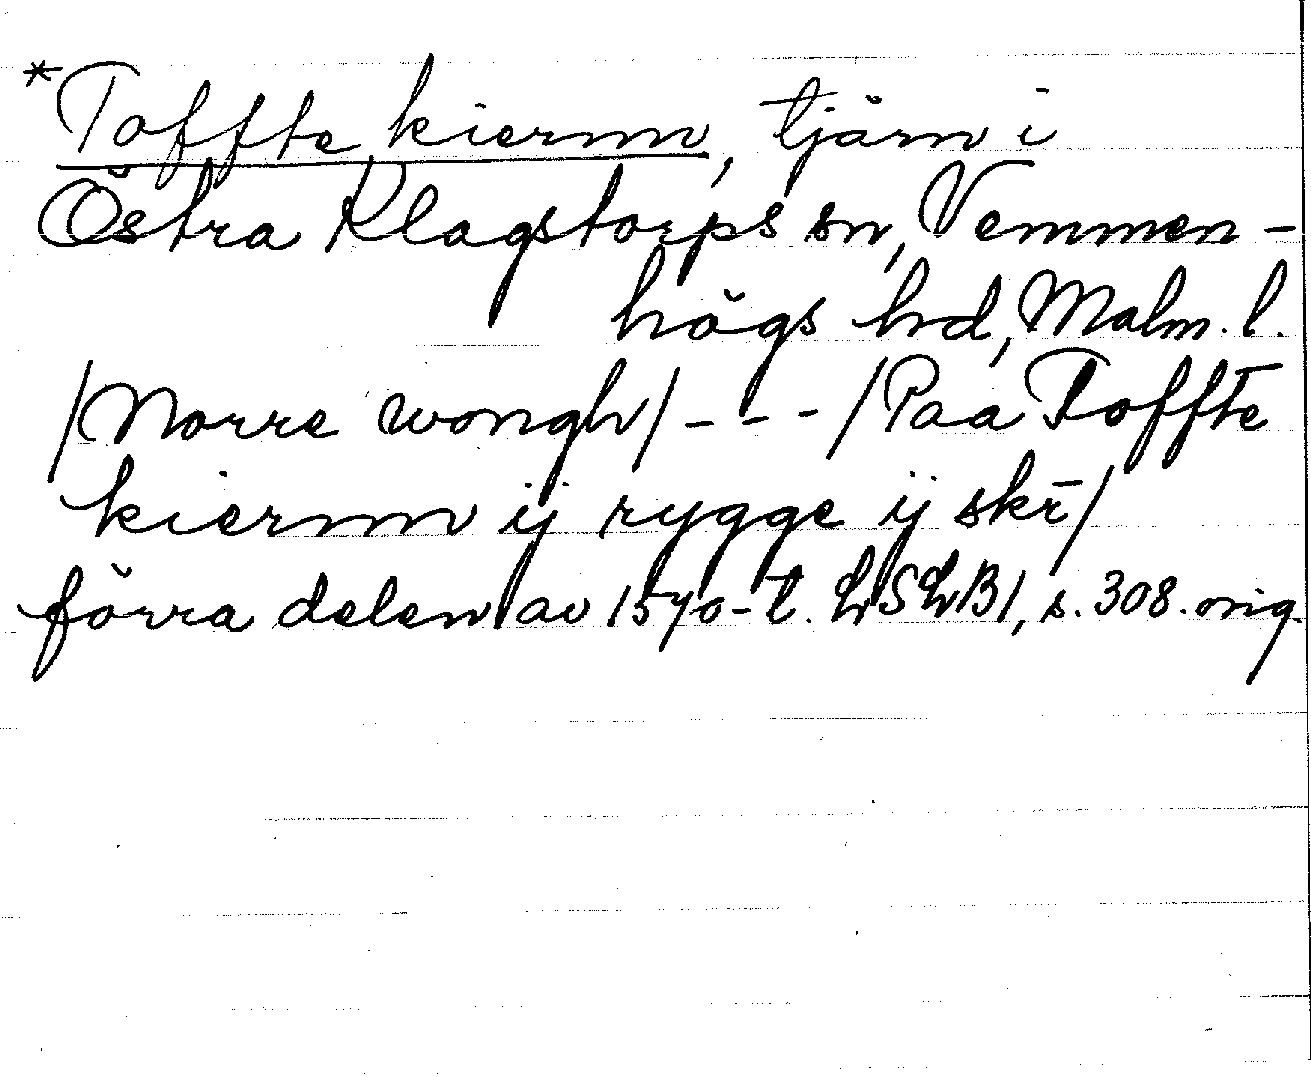 *Toffte kierrn, tjärn i
Östra Klagstorps sn, Vemmen-
högs hd, Malm. l.
/Norre wongh/ - - - /Paa Toffte
kierrn ij rygge ij skr̄/
förra delen av 1570-t. LSLB1, s. 308. orig.